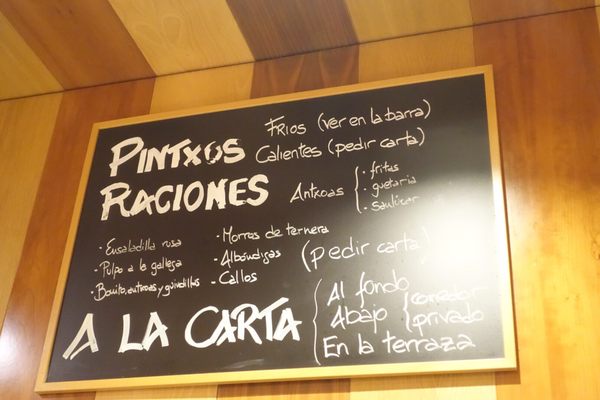 PINTXOS FRIOS (ver en la barra)
Calientes (pedir carta)
RACIONES Antxoas { - fritas
- guetaria
- Sanlúcar
- Ensaladilla rusa
- Pulpo a la gallega
- Bonito, antxoas y guindillas
- Morros de ternera
- Albóndigas
- Callos
(pedir carta)
A LA CARTA
Al fondo
Abajo (comedor privado
En la terraza